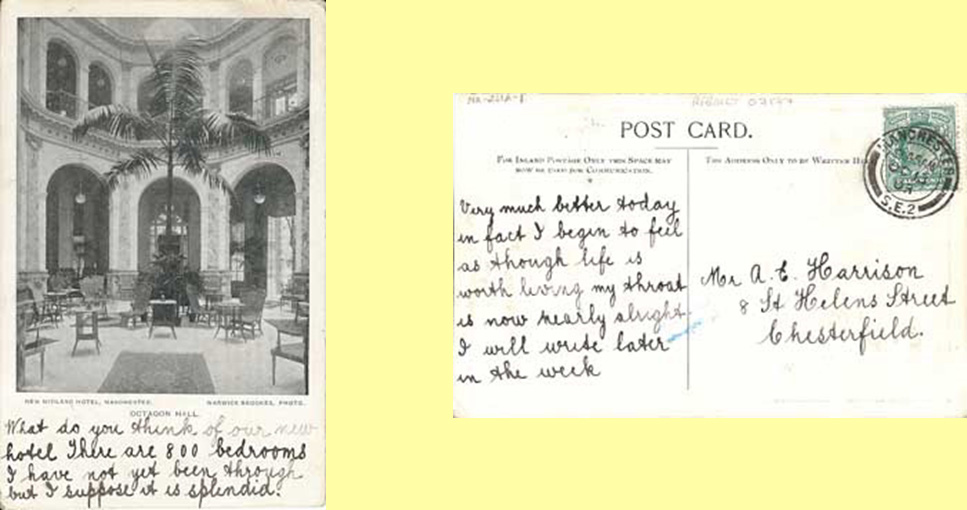 NEW MIDLAND HOTEL, MANCHESTER.
WARWICK BROOKES, PHOTO.
OCTAGON HALL.
What do you think of our new
hotel There are 800 bedrooms
I have not yet been through
but I suppose it is splendid.
POST CARD.
FOR INLAND POSTAGE ONLY THIS SPACE MAY
NOW BE USED FOR COMMUNICATION.
THE ADDRESS ONLY TO BE WRITTEN
MANCHESTER
S.E.2
Very much better today
in fact I begin to feel
as though life is
worth living my throat
is now nearly alright
I will write later
in the week
Mr A. E. Harrison
8 St Helens Street
Chesterfield.